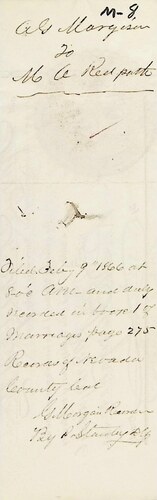 M-8.
A G Margison
To
M A Redpath
Filed July 9th 1866 at
8 o'c AM and duly
recorded in book 1 of
Marriages page 275
Records of Nevada
County Cal
G Morgan Recorder
Dep